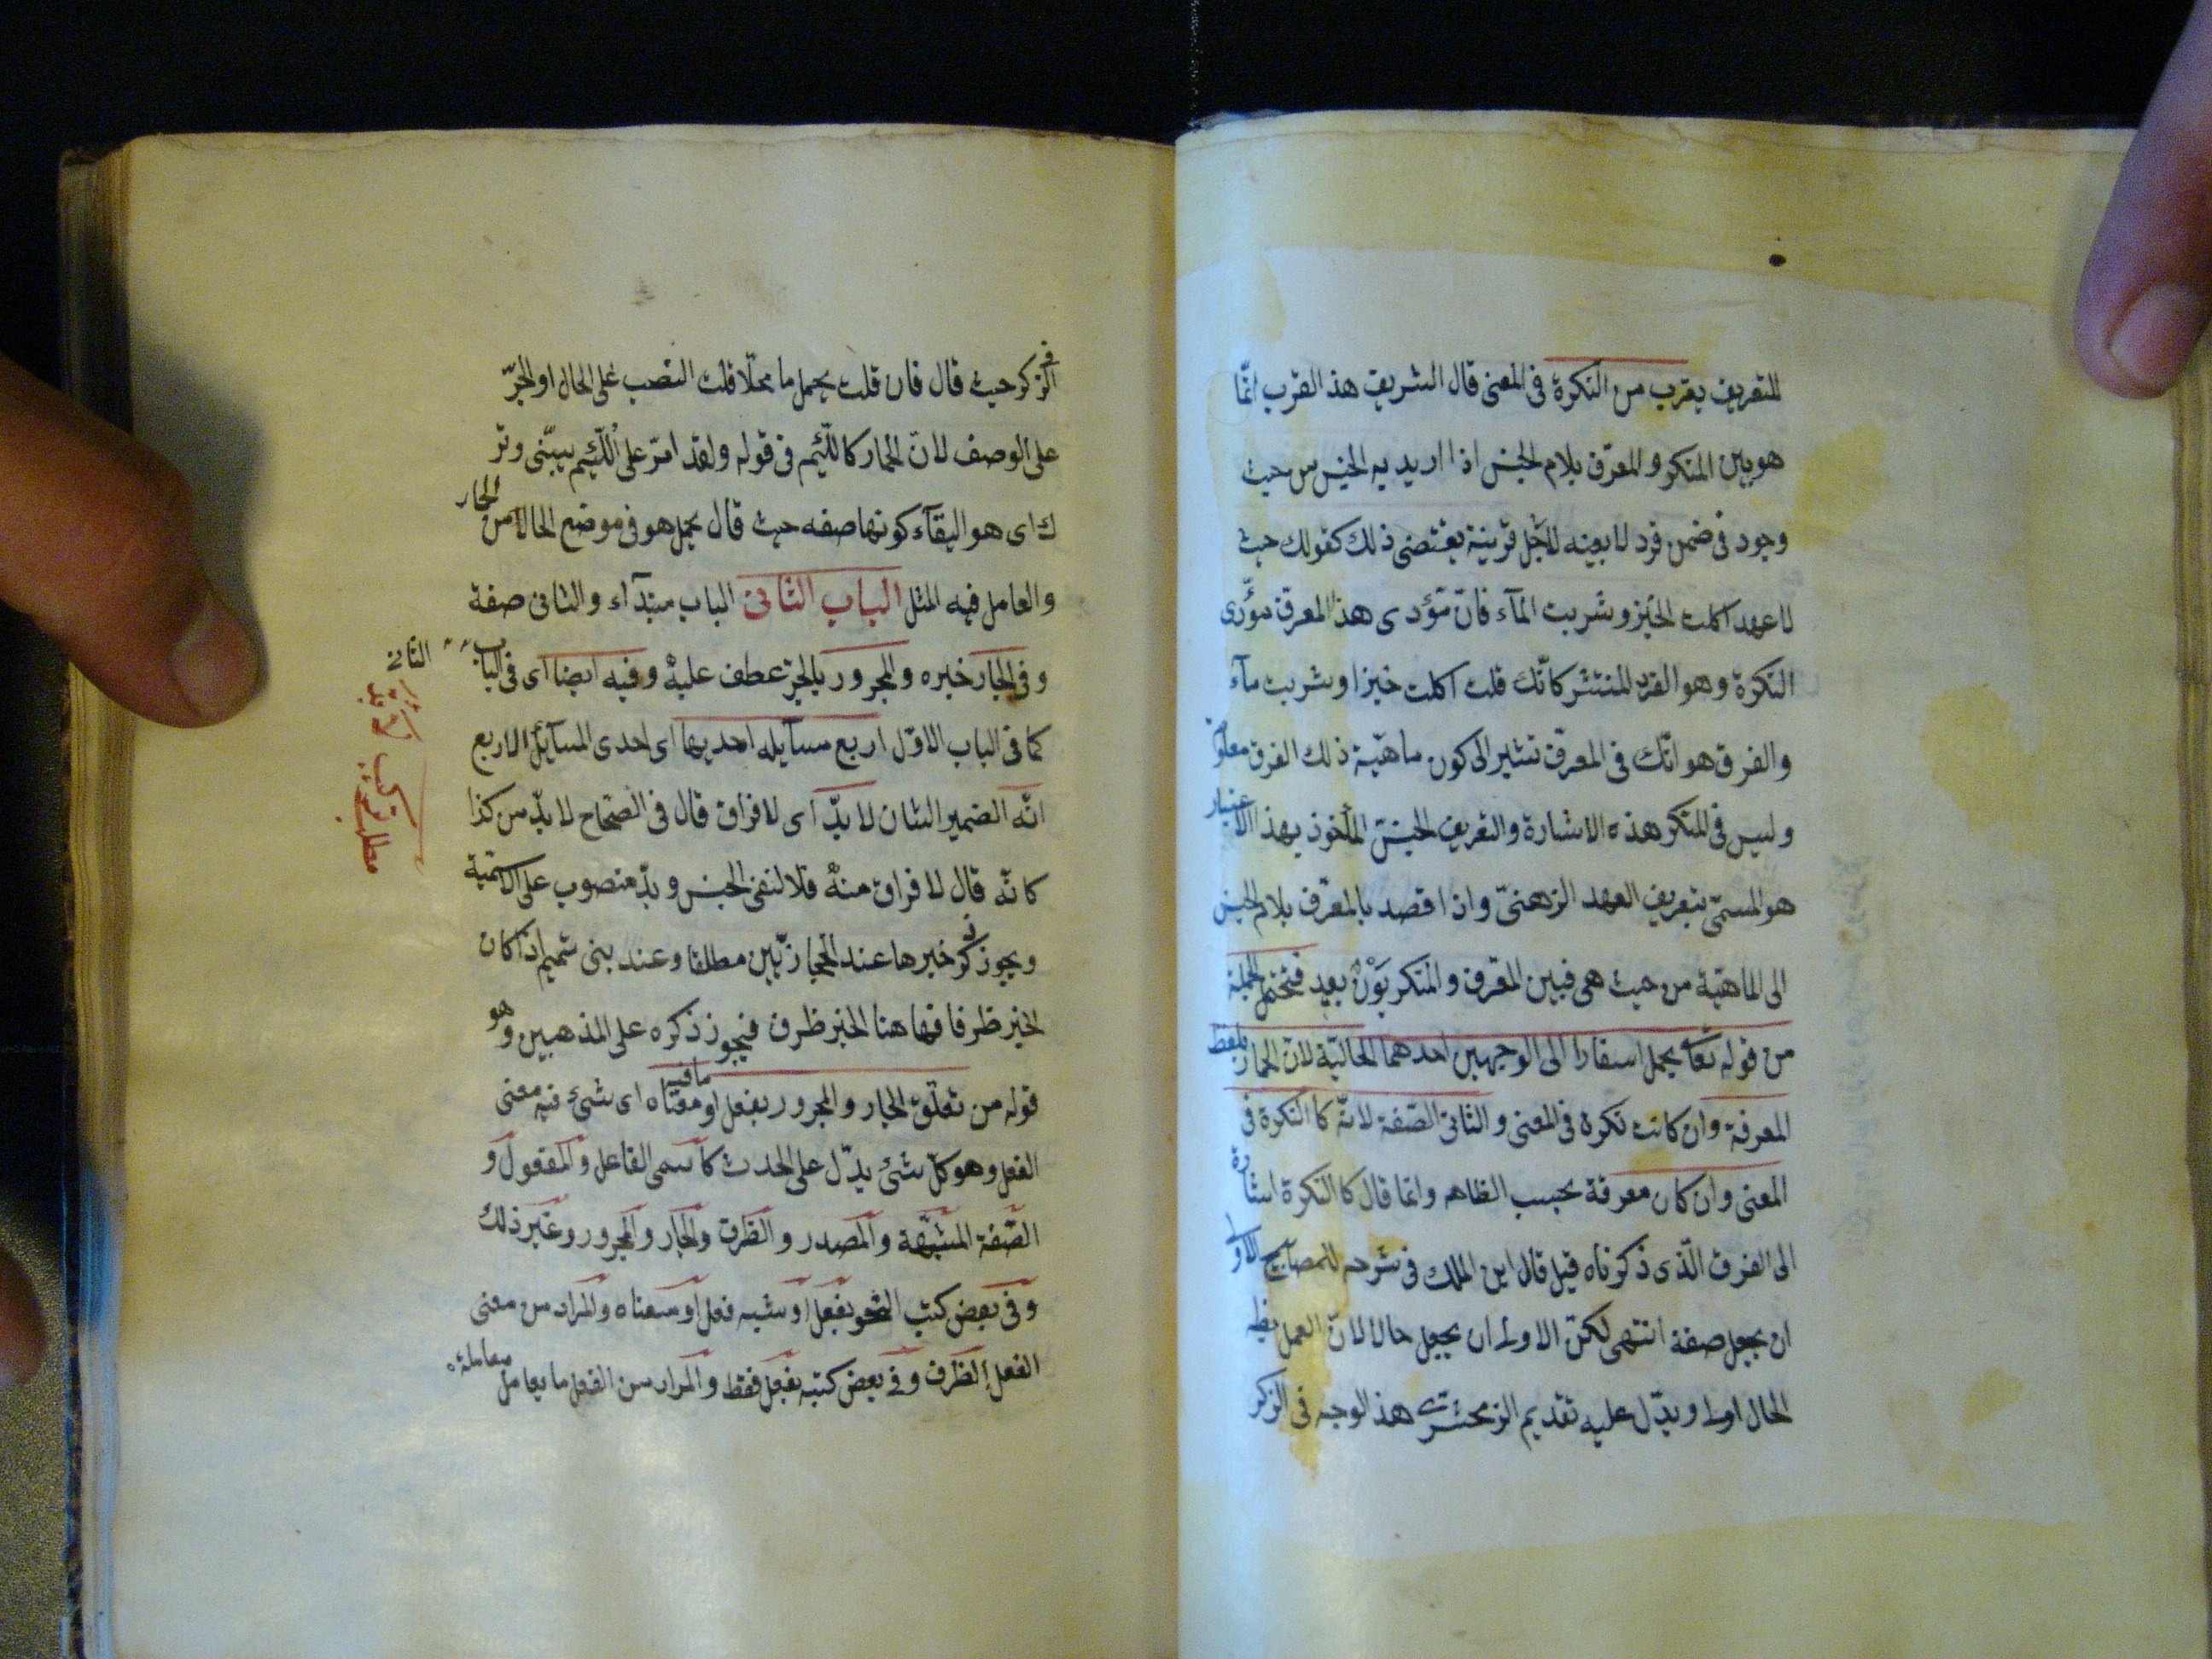 للتعريف يقرب من النكرة فى المعنى قال الشريف هذ القرب انما
هو بين المنكر والمعرّف بلام الجنس اذا اريد به الجنس من حيث
وجود فى ضمن فرد لا بعينه لاجل قرينة يقتضى ذلك كقولك حيث
لا عهد اكلت الخبز وشربت المآء فان مؤدى هذ المعرف مؤدى
النكرة وهو الفرد المنتشر كانّك قلت اكلت خبزا وشربت مآء
والفرق هو انّك فى المعرّف تشير الى كون ماهيّة ذلك الفرق معلومة
وليس فى المنكر هذه الاشارة والتعريف الجنسىّ المأخوذ بهذ الاعتبار
هو المسمّى بتعريف العهد الزهنىّ واذا قصد بالمعرّف بلام الجنس
الى الماهيّة من حيث هى فبين المعرف والمنكر بَوْنٌ بعيد فتحتمل الجملة
من قوله تعا يحمل اسفارا الى الوجهين احدهما الحاليّة لان الحمار بلفظ
المعرفة وان كانت نكرة فى المعنى والثانى الصّفة لانّه كا النكرة فى
المعنى وان كان معرفة بحسب الظاهر وانما قال كا النكرة اشارة
الى الفرق الّذى ذكرناه قيل قال ابن الملك فى شرحه للمصابيح الاولى
ان يجعل صفة انتهى لكن الاولى ان يجعل حالا لانّ العمل
الحال اولى ويدّل عليه تقديم الزمحشرى هذ الوجه فى الزكر
فى
الزكر حيث قال فان قلت يحمل ما محلّا قلت النصب على الحال او الجرّ
على الوصف لان الحمار كاللّئيم فى قوله ولقد امرّ على اللّئيم يسبّنى وتر
ك اى هو البقآء كونها صفه حيث قال يحمل هو فى موضع الحال من الحمار
والعامل فيه المثل الباب الثانى الباب مبتدآء والثانى صفة
وفى الجار خبره والمجرور بالجرّ عطف عليه وفيه ايضا اى فى الباب الثانى
كما فى الباب الاوّل اربع مسآيله احديها اى احدى المسآئل الاربع
انّه الضمير الشان لا بدّ اى لا فراق قال فى الصّحاح لا بدّ من كذا
كانّه قال لا فراق منه فلا لنفى الجنس وبدّ منصوب على الاسميّة
ويجوز ذكر خبرها عند الحجازيّين مطلقا وعند بنى تميم اذا كان
الخبر ظرفا فهاهنا الخبر ظرف فيجوز ذكره على المذهبين وهو
قوله من تعلّق الجار والمجرور بفعل او ما فيه معناه اى شىء فيه معنى
الفعل وهو كلّ شىء يدّل على الحدث كا سمى الفاعل والمفعول و
الصّفة المشبّهة والمصدر والظرف والجار والمجرور وغير ذلك
وفى بعض كتب النّحو بفعل او شبه فعل او معناه والمراد من معنى
الفعل الظرف وفى بعض كتبه بفعل فقط والمراد من الفعل ما يعامل معاملته
مطلب تركيب لا بد